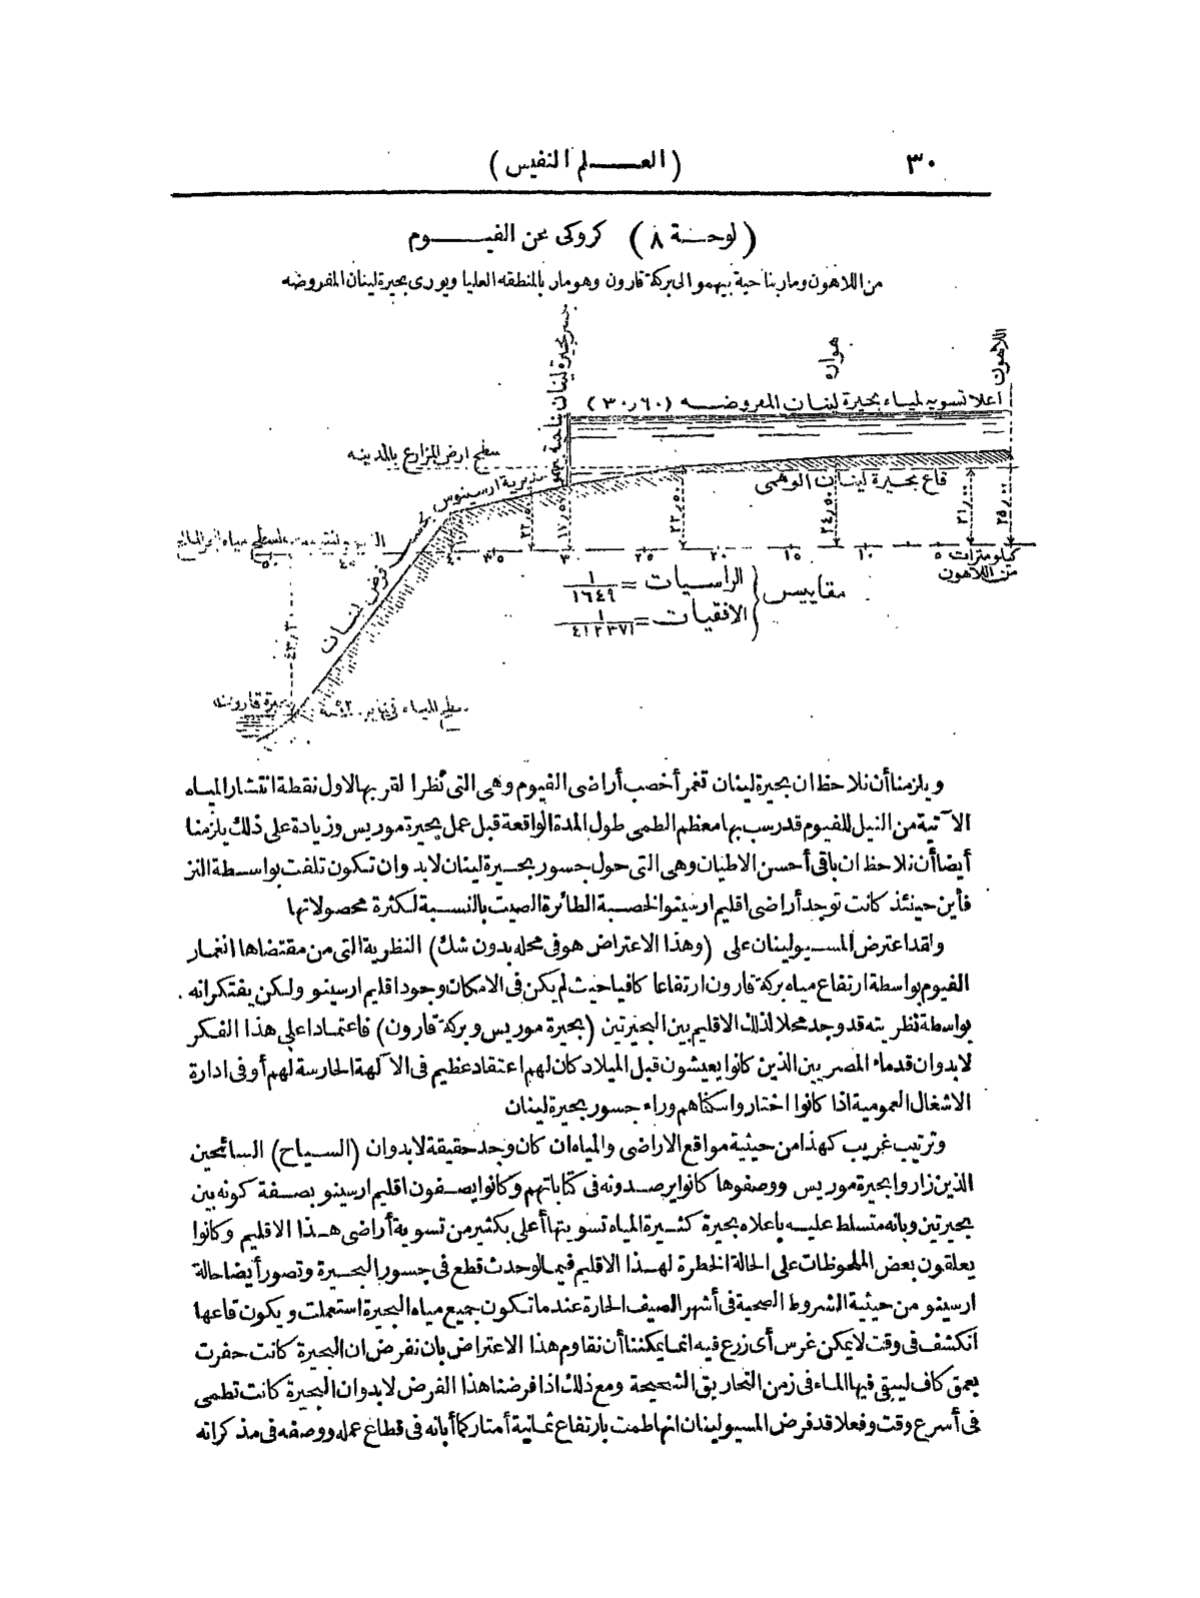 ٣٠
(العلم النفيس)
(لوحة ٨) كروكى عن الفيوم
من اللاهون ومار بناحية بيهمو الى بركة قارون وهو مار بالمنطقه العليا ويورى بحيرة لينان المفروضه
جسر بحيرة لينان بناحية بيهمو
هواره
اللاهون
اعلا تسويه لمياه بحيرة لينان المفروضه (٣٠٫٦٠)
سطح ارض المزارع بالمدينه
مديرية ارسينوى بحسب
فرض لينان
قاع بحيرة لينان الوهمى
٢٢٫٥٠
١٧٫٥٧
٢٢٫٥٠
٢٤٫٥٠
٢١٫٠٠
٢٥٫٠٠
سطح مياه البحر المالح
٥٠ ٤٥ ٤٠ ٣٥ ٣٠ ٢٥ ٢٠ ١٥ ١٠ ٥ كيلومترات
من اللاهون
مقاييس
الراسيات = ١/١٦٤٩
الافقيات = ١/٤١٢٣٧١
٤٣٫٣٠
بحيرة قارون
سطح المياه فى يناير سنة ٩٢
ويلزمنا أن نلاحظ ان بحيرة لينان تغمر أخصب أراضى الفيوم وهى التى نظرا لقربها لاول نقطة انتشار المياه
الآتية من النيل للفيوم قد رسب بها معظم الطمى طول المدة الواقعة قبل عمل بحيرة موريس وزيادة على ذلك يلزمنا
أيضا أن نلاحظ ان باقى أحسن الاطيان وهى التى حول جسور بحيرة لينان لابد وان تكون تلفت بواسطة النز
فأين حينئذ كانت توجد أراضى اقليم ارسينو الخصبة الطائرة الصيت بالنسبة لكثرة محصولاتها
ولقد اعترض المسيو لينان على (وهذا الاعتراض هو فى محله بدون شك) النظرية التى من مقتضاها انغمار
الفيوم بواسطة ارتفاع مياه بركة قارون ارتفاعا كافيا حيث لم يكن فى الامكان وجود اقليم ارسينو ولكن يفتكر انه
بواسطة نظريته قد وجد محلا لذلك الاقليم بين البحيرتين (بحيرة موريس وبركة قارون) فاعتمادا على هذا الفكر
لابد وان قدماء المصريين الذين كانوا يعيشون قبل الميلاد كان لهم اعتقاد عظيم فى الآلهة الحارسة لهم أو فى ادارة
الاشغال العمومية اذا كانوا اختاروا سكناهم وراء جسور بحيرة لينان
وترتيب غريب كهذا من حيثية مواقع الاراضى والمياه ان كان وجد حقيقة لابد وان (السياح) السائحين
الذين زاروا بحيرة موريس ووصفوها كانوا يرصدونه فى كتاباتهم وكانوا يصفون اقليم ارسينو بصفة كونه بين
بحيرتين وبانه متسلط عليه باعلاه بحيرة كثيرة المياه تسويتها أعلى بكثير من تسوية أراضى هذا الاقليم وكانوا
يعلقون بعض الملحوظات على الحالة الخطرة لهذا الاقليم فيما لو حدث قطع فى جسور البحيرة وتصور أيضا حالة
ارسينو من حيثية الشروط الصحية فى أشهر الصيف الحارة عندما تكون جميع مياه البحيرة استعملت ويكون قاعها
انكشف فى وقت لا يمكن غرس أى زرع فيه انما يمكننا أن نقاوم هذا الاعتراض بان نفرض ان البحيرة كانت حفرت
بعمق كاف ليبقى فيها الماء فى زمن التحاريق الشحيحة ومع ذلك اذا فرضنا هذا الفرض لابد وان البحيرة كانت تطمى
فى أسرع وقت وفعلا قد فرض المسيو لينان انها طمت بارتفاع ثمانية أمتار كما أبانه فى قطاع عمله ووصفه فى مذكراته